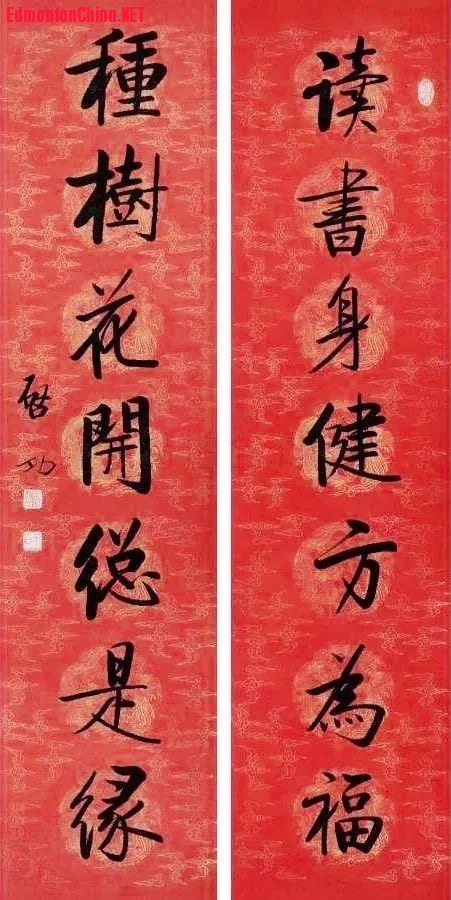 EdmontonChina.NET
读書身健方為福
種樹花開緫是缘
啓功